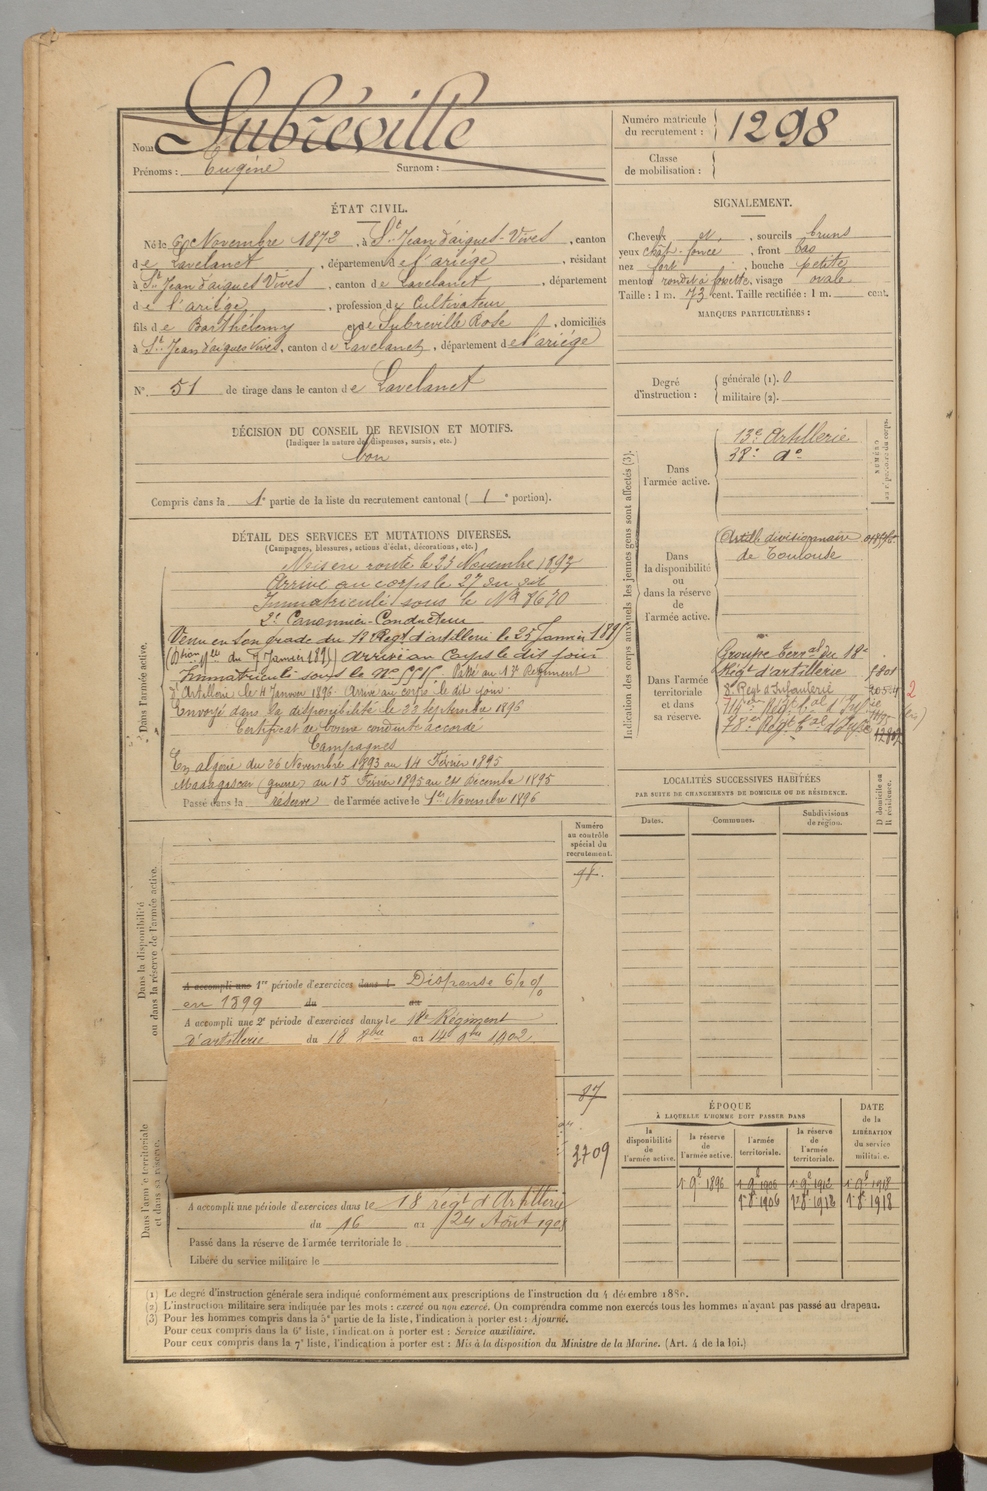 Nom Subréville
Prénoms : Eugène Surnom :
ÉTAT CIVIL.
Né le 6 Novembre 1872, à St Jean d'aigues-Vives, canton
de Lavelanet, département de l'ariége, résidant
à St Jean d'aigues Vives, canton de Lavelanet, département
de l'ariége, profession de Cultivateur
fils de Barthélemy et de Subreville Rose, domiciliés
à St Jean d'aigues Vives, canton de Lavelanet, département de l'ariége
N° 51 de tirage dans le canton de Lavelanet
DÉCISION DU CONSEIL DE REVISION ET MOTIFS.
(Indiquer la nature des dispenses, sursis, etc.)
bon
Compris dans la 1e partie de la liste du recrutement cantonal (1e portion).
DÉTAIL DES SERVICES ET MUTATIONS DIVERSES.
(Campagnes, blessures, actions d'éclat, décorations, etc.)
Dans l'armée active.
Mis en route le 23 Novembre 1893
Arrivé au corps le 27 du dit
Immatriculé sous le N° 8670
2e Canonnier-Conducteur
Venu en son grade du 18e Regt d'artillerie le 25 Janvier 189
du 7 Janvier 1895) arrivé au Corps le dit jour
Immatriculé sous le No Passé au 13e Régiment
d'Artillerie le 4 Janvier 1896. Arrivé au corps le dit jour.
Envoyé dans la disponibilité le 22 septembre 1896
Certificat de bonne conduite accordé
Campagnes
En algérie du 26 Novembre 1893 au 14 Février 1895
Madagascar (guerre) du 15 Février 1895 au 21 Décembre 1895
Passé dans la réserve de l'armée active le 1er Novembre 1896
Dans la disponibilité
ou dans la réserve de l'armée active.
Numéro
au contrôle
spécial du
recrutement.
98.
A accompli une 1re période d'exercices dans l Dispense 6/20/0
en 1899 du au
A accompli une 2e période d'exercices dans le 18e Régiment
d'artillerie du 18 8bre au 14 9bre 1902.
Dans l'armée territoriale
et dans sa réserve.
87
3709
A accompli une période d'exercices dans le 18 régt d'Artillerie
du 16 au 24 Août 1908
Passé dans la réserve de l'armée territoriale le
Libéré du service militaire le
Numéro matricule
du recrutement : 1298
Classe
de mobilisation :
SIGNALEMENT.
Cheveux et, sourcils bruns
yeux chât-foncé, front bas
nez fort, bouche petite
menton rond et à fossette, visage ovale
Taille : 1 m. 73 cent. Taille rectifiée : 1 m. cent.
MARQUES PARTICULIÈRES :
Degré
d'instruction :
générale (1). 0
militaire (2).
Indication des corps auxquels les jeunes gens sont affectés (3).
NUMÉRO
Dans
l'armée active.
13e Artillerie
38e do
Dans
la disponibilité
ou
dans la réserve
de
l'armée active.
Artille divisionnaire
de Toulouse
Dans l'armée
territoriale
et dans
sa réserve.
Groupe terral du 18e
Régt d'artillerie
Regt d'Infanterie
Régt tal d'Infie
78e Régt tal d'Infie
LOCALITÉS SUCCESSIVES HABITÉES
PAR SUITE DE CHANGEMENTS DE DOMICILE OU DE RÉSIDENCE.
Dates. Communes. Subdivisions
de région.
D domicile ou
R résidence.
ÉPOQUE
À LAQUELLE L'HOMME DOIT PASSER DANS
DATE
de la
LIBÉRATION
du service
militaire.
la
disponibilité
de
l'armée active.
la réserve
de
l'armée active.
l'armée
territoriale.
la réserve
de
l'armée
territoriale.
1er 9e 1896 1er 9e 1906 1er 9e 1912 1er 9e 1918
1er 8e 1906 1er 8e 1918 1er 8e 1918
(1) Le degré d'instruction générale sera indiqué conformément aux prescriptions de l'instruction du 4 décembre 1889.
(2) L'instruction militaire sera indiquée par les mots : exercé ou non exercé. On comprendra comme non exercés tous les hommes n'ayant pas passé au drapeau.
(3) Pour les hommes compris dans la 5e partie de la liste, l'indication à porter est : Ajourné.
Pour ceux compris dans la 6e liste, l'indication à porter est : Service auxiliaire.
Pour ceux compris dans la 7e liste, l'indication à porter est : Mis à la disposition du Ministre de la Marine. (Art. 4 de la loi.)